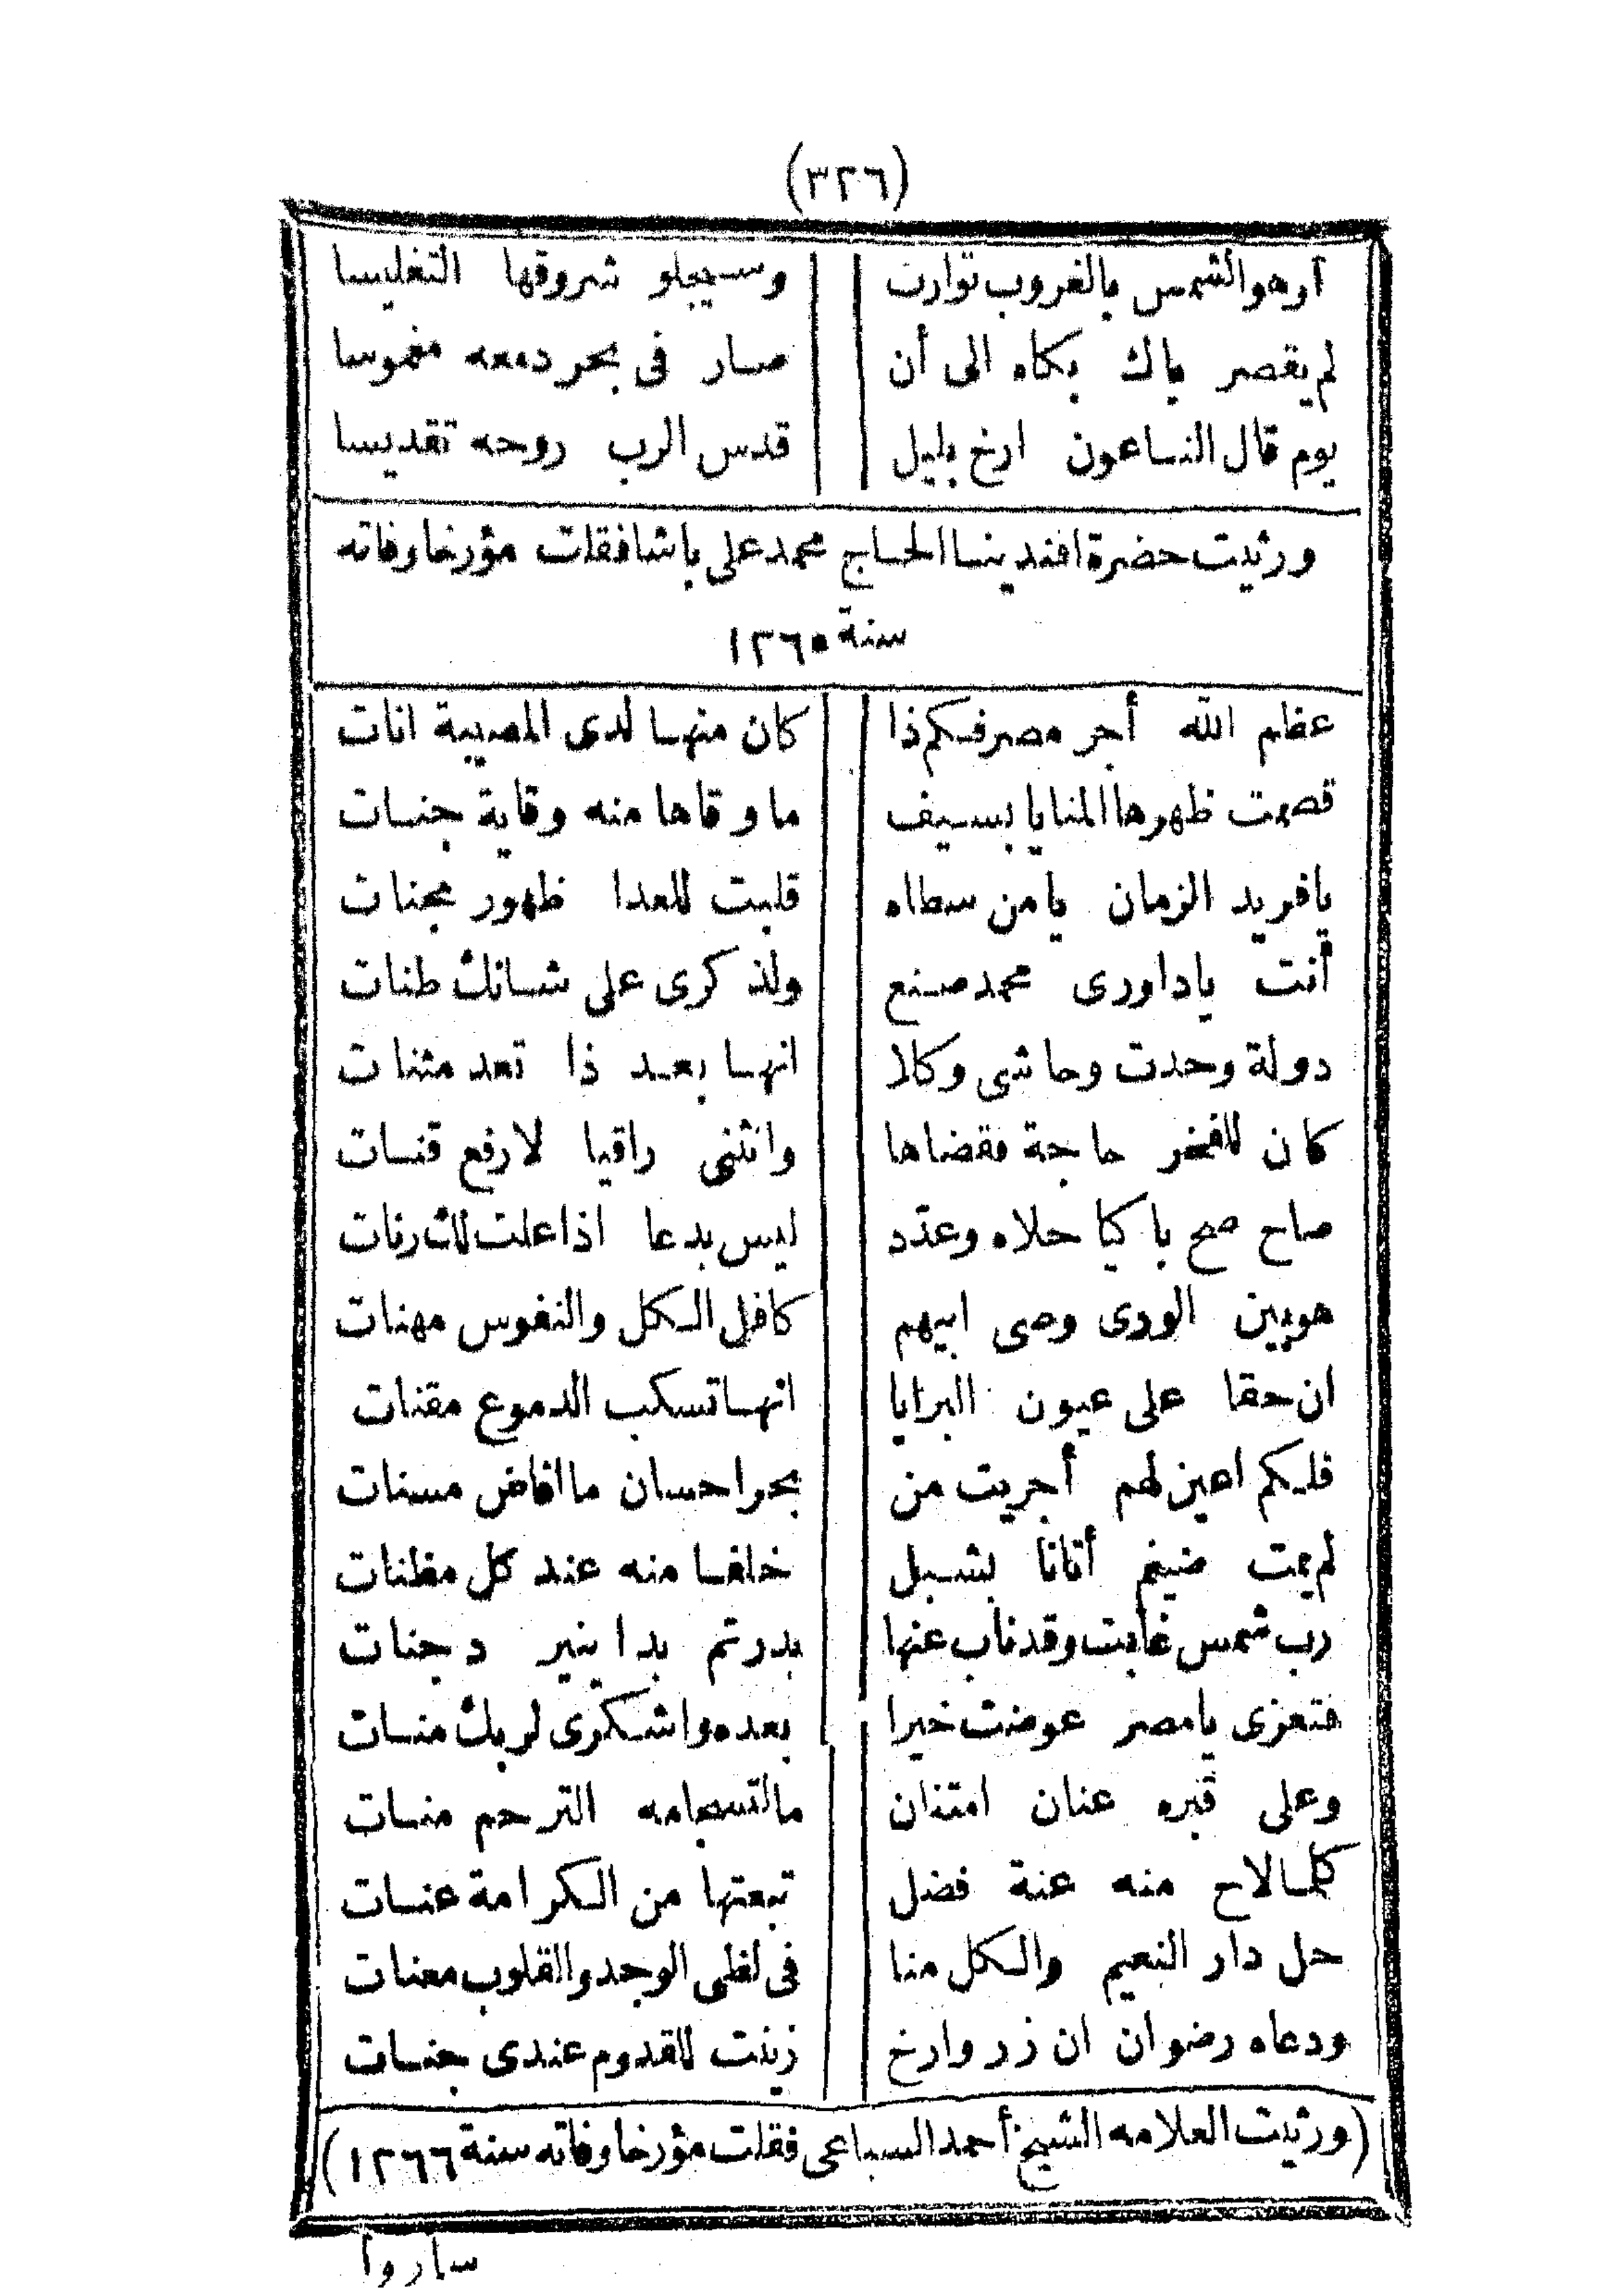 (٣٢٦)
أوهو الشمس بالغروب توارت وسيجلو شروقها التغليسا
لم يقصر باك بكاه الى أن صار فى بحر دمعه مغموسا
يوم قال الناعون ارخ بليل قدس الرب روحه تقديسا
ورثيت حضرة افندينا الحاج محمد على باشا فقلت مؤرخا وفاته
سنة ١٢٦٥
عظم الله أجر مصر فكم ذا كان منها لدى المصيبة انات
قصمت ظهرها المنايا بسيف ما وقاها منه وقاية جنات
يا فريد الزمان يا من سطاه قلبت للعدا ظهور مجنات
أنت يا داورى محمد صنع ولذكرى على شانك طنات
دولة وحدت وحاشى وكلا انها بعد ذا تعد مثنات
كان للفخر حاجة فقضاها وانثنى راقيا لارفع قنات
صاح صح باكيا حلاه وعدّد ليس بدعا اذا علت لك رنات
هو بين الورى وصى ابيهم كافل الكل والنفوس مهنات
ان حقا على عيون البرايا انها تسكب الدموع مقنات
فلكم اعين لهم أجريت من بحر احسان ما افاض مسنات
لم يمت ضيغم أتانا بشبل خلفا منه عند كل مظنات
رب شمس غابت وقد ناب عنها بدر تم بدا ينير دجنات
فتعزى يا مصر عوضت خيرا بعده واشكرى لربك منات
وعلى قبره عنان امتنان ما لتسجامه الترحم منات
كلما لاح منه عنة فضل تبعتها من الكرامة عنات
حل دار النعيم والكل منا فى لظى الوجد والقلوب معنات
ودعاه رضوان ان زر وارخ زينت للقدوم عندى جنات
(ورثيت العلامه الشيخ أحمد السباعى فقلت مؤرخا وفاته سنة ١٢٦٦)
ساروا